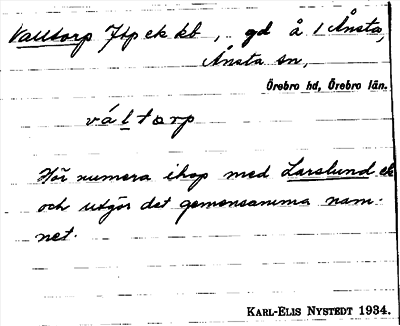 Valltorp Jtp ek kt, gd å 1 Ånsta,
Ånsta sn,
Örebro hd, Örebro län.
váltorp
Hör numera ihop med Larslund ek
och utgör det gemensamma nam-
net.
KARL-ELIS NYSTEDT 1934.